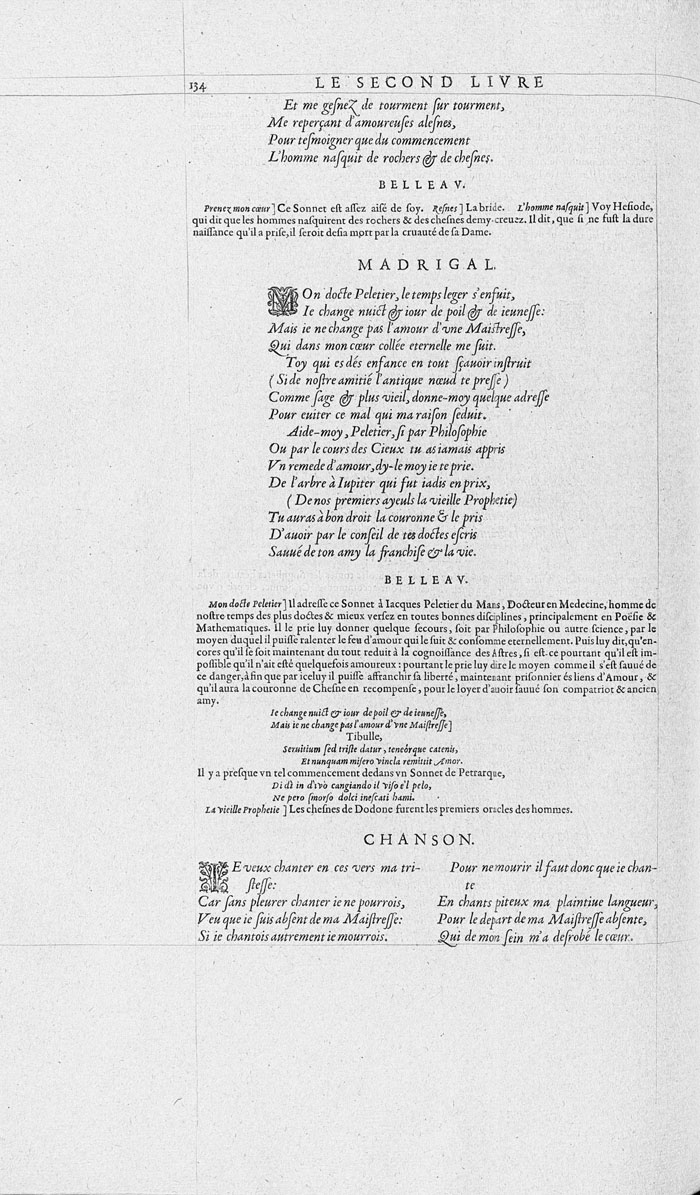 134 LE SECOND LIVRE
Et me geſnez de tourment ſur tourment,
Me reperçant d'amoureuſes aleſnes,
Pour teſmoigner que du commencement
L'homme naſquit de rochers & de cheſnes.
BELLEAV.
Prenez mon cœur] Ce Sonnet eſt aſſez aisé de ſoy. Reſnes] La bride. L'homme naſquit] Voy Heſiode,
qui dit que les hommes naſquirent des rochers & des cheſnes demy-creuez. Il dit, que ſi ne fuſt la dure
naiſſance qu'il a priſe, il ſeroit deſia mort par la cruauté de ſa Dame.
MADRIGAL.
MOn docte Peletier, le temps leger s'enfuit,
Ie change nuict & iour de poil & de ieuneſſe:
Mais ie ne change pas l'amour d'vne Maiſtreſſe,
Qui dans mon cœur collée eternelle me ſuit.
Toy qui es dés enfance en tout ſçauoir inſtruit
(Si de noſtre amitié l'antique nœud te preſſe)
Comme ſage & plus vieil, donne-moy quelque adreſſe
Pour euiter ce mal qui ma raiſon ſeduit.
Aide-moy, Peletier, ſi par Philoſophie
Ou par le cours des Cieux tu as iamais appris
Vn remede d'amour, dy-le moy ie te prie.
De l'arbre à Iupiter qui fut iadis en prix,
(De nos premiers ayeuls la vieille Prophetie)
Tu auras à bon droit la couronne & le pris
D'auoir par le conſeil de tes doctes eſcris
Sauué de ton amy la franchiſe & la vie.
BELLEAV.
Mon docte Peletier] Il adreſſe ce Sonnet à Iacques Peletier du Mans, Docteur en Medecine, homme de
noſtre temps des plus doctes & mieux verſez en toutes bonnes diſciplines, principalement en Poëſie &
Mathematiques. Il le prie luy donner quelque ſecours, ſoit par Philoſophie ou autre ſcience, par le
moyen duquel il puiſſe ralenter le feu d'amour qui le ſuit & conſomme eternellement. Puis luy dit, qu'en-
cores qu'il ſe ſoit maintenant du tout reduit à la cognoiſſance des Aſtres, ſi eſt-ce pourtant qu'il eſt im-
poſſible qu'il n'ait eſté quelquefois amoureux: pourtant le prie luy dire le moyen comme il s'eſt ſauué de
ce danger, à fin que par iceluy il puiſſe affranchir ſa liberté, maintenant priſonnier és liens d'Amour, &
qu'il aura la couronne de Cheſne en recompenſe, pour le loyer d'auoir ſauué ſon compatriot & ancien
amy.
Ie change nuict & iour de poil & de ieuneſſe,
Mais ie ne change pas l'amour d'vne Maiſtreſſe]
Tibulle,
Seruitium ſed triſte datur, teneórque catenis,
Et nunquam miſero vincla remittit Amor.
Il y a preſque vn tel commencement dedans vn Sonnet de Petrarque,
Di dì in dì vò cangiando il viſo e'l pelo,
Ne pero ſmorſo dolci ineſcati hami.
La vieille Prophetie] Les cheſnes de Dodone furent les premiers oracles des hommes.
CHANSON.
IE veux chanter en ces vers ma tri-
ſteſſe:
Car ſans pleurer chanter ie ne pourrois,
Veu que ie ſuis abſent de ma Maiſtreſſe:
Si ie chantois autrement ie mourrois.
Pour ne mourir il faut donc que ie chan-
te
En chants piteux ma plaintiue langueur,
Pour le depart de ma Maiſtreſſe abſente,
Qui de mon ſein m'a deſrobé le cœur.